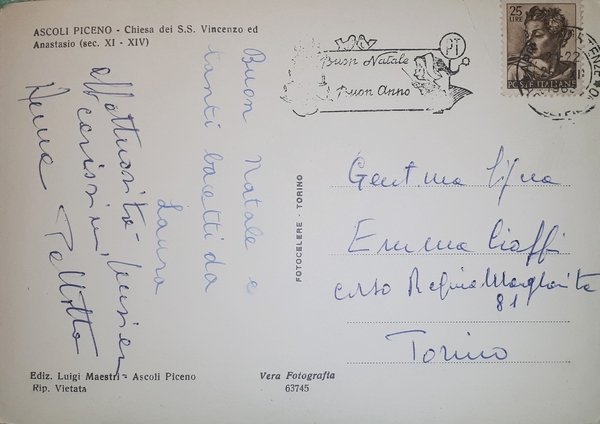 ASCOLI PICENO - Chiesa dei S.S. Vincenzo ed
Anastasio (sec. XI - XIV)
Buon Natale e
tanti bacetti da
Laura
affettuosità
carissimi
25
LIRE
POSTE ITALIANE
PT
Buon Natale
Buon Anno
FOTOCELERE - TORINO
Gent.ma
Emma Ciaffi
corso Regina Margherita
81
Torino
Ediz. Luigi Maestri - Ascoli Piceno
Rip. Vietata
Vera Fotografia
63745